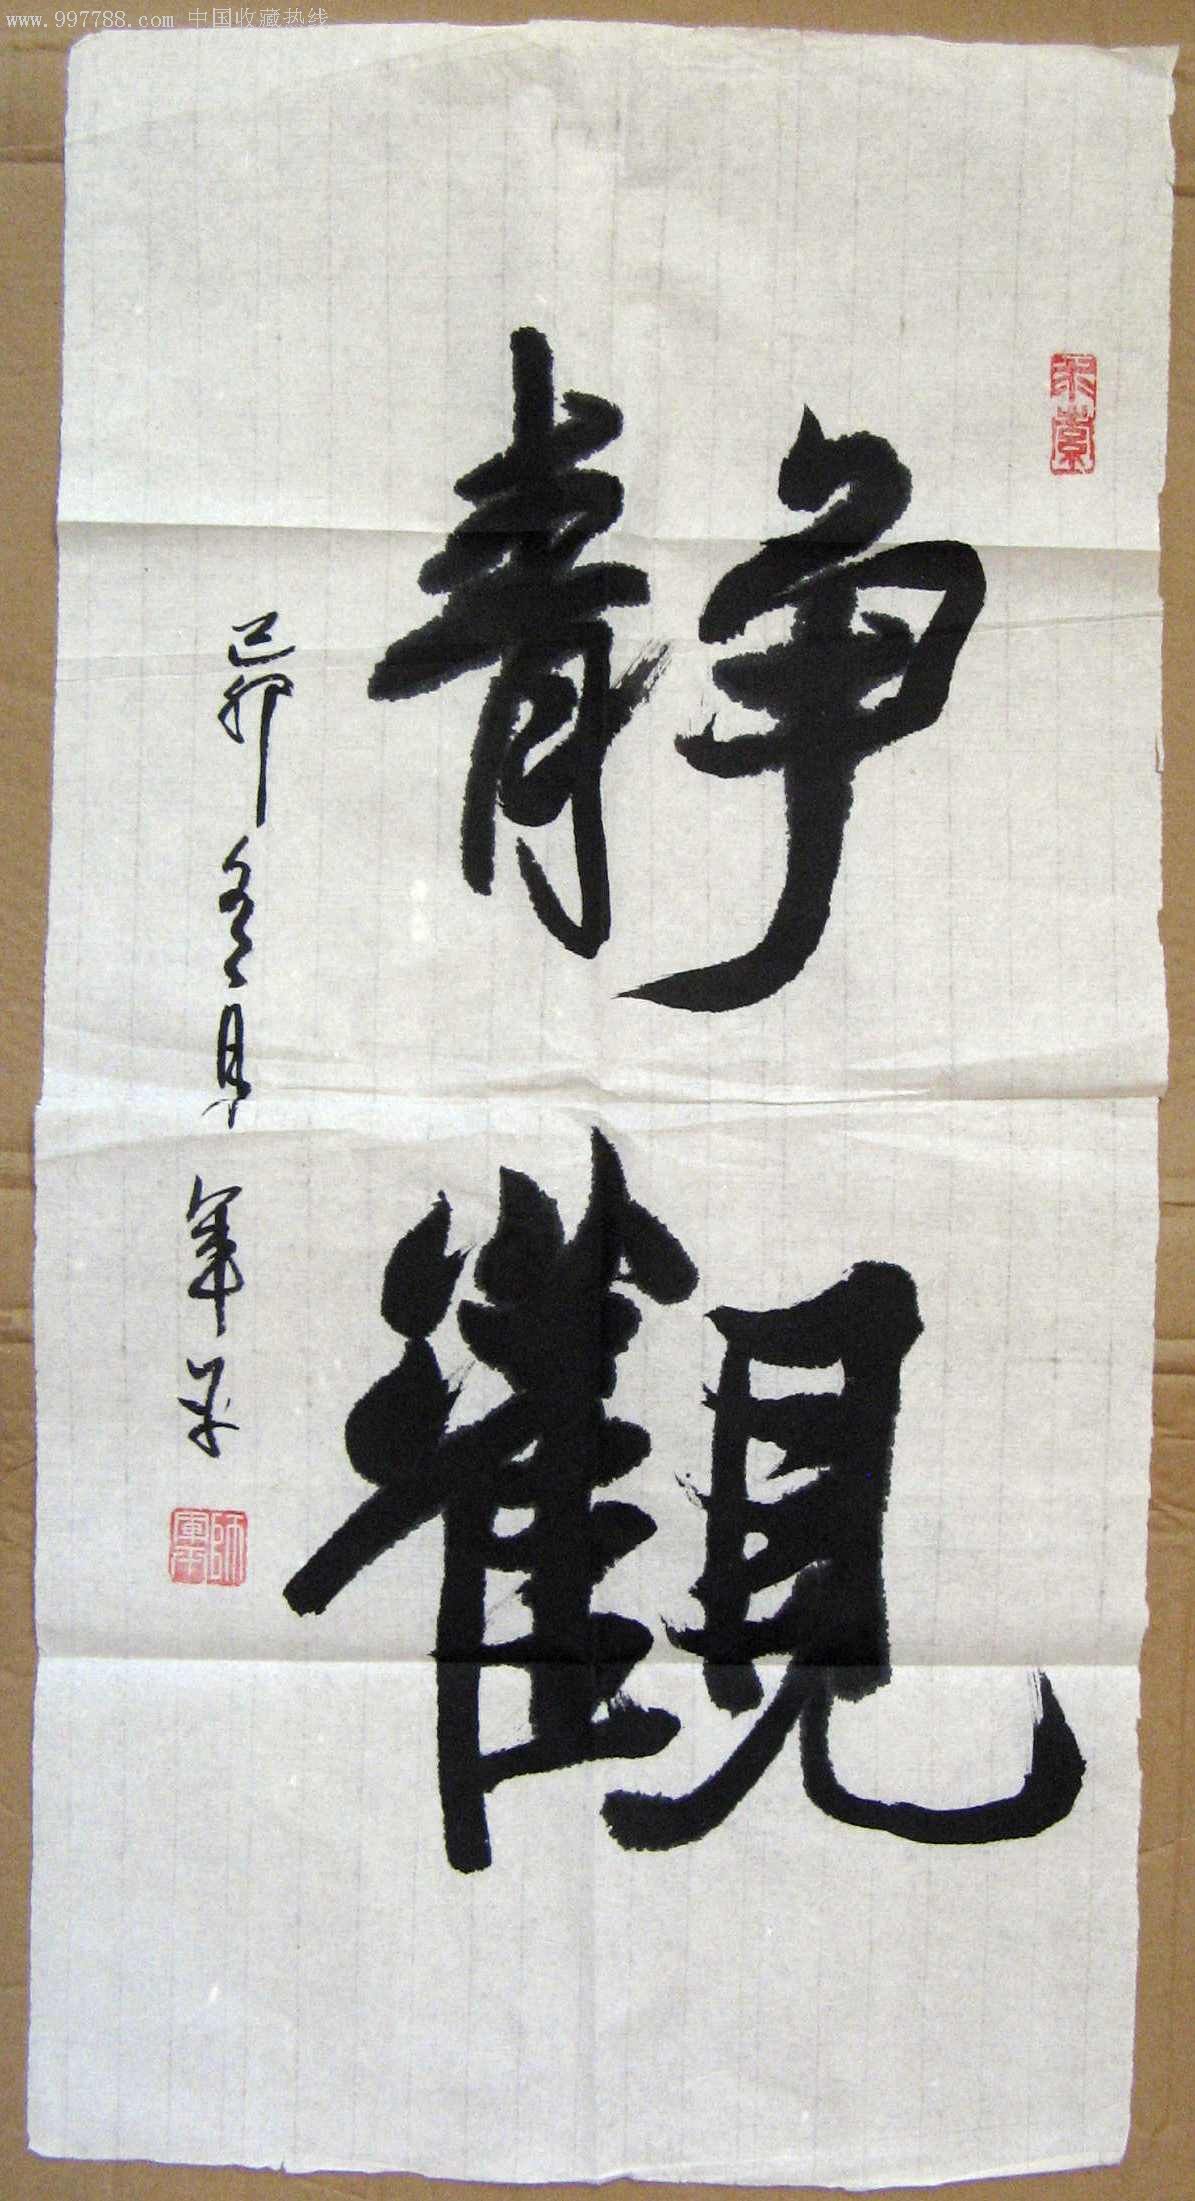 www.997788.com 中国收藏热线
静觀
己卯冬月 军平